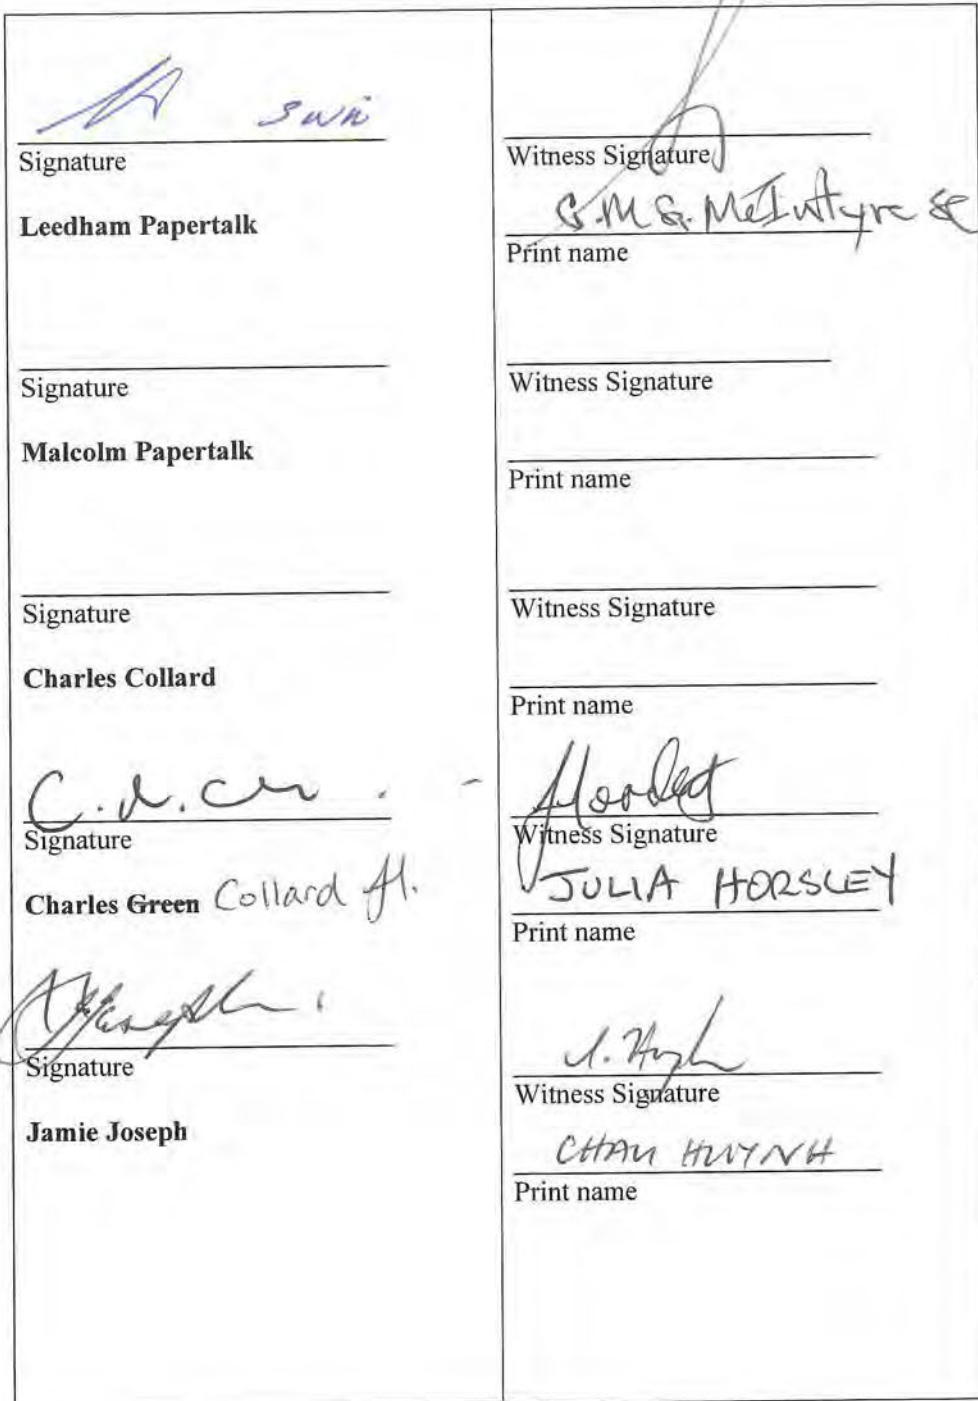 Signature
Leedham Papertalk
Signature
Malcolm Papertalk
Signature
Charles Collard
Signature
Charles Green Collard
Signature
Jamie Joseph
Witness Signature
G.M.G. McIntyre SC
Print name
Witness Signature
Print name
Witness Signature
Print name
Witness Signature
JULIA HORSLEY
Print name
Witness Signature
CHAU HUYNH
Print name